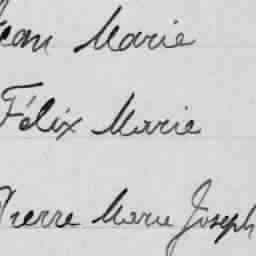 Jean Marie
Félix Marie
Pierre Marie Joseph